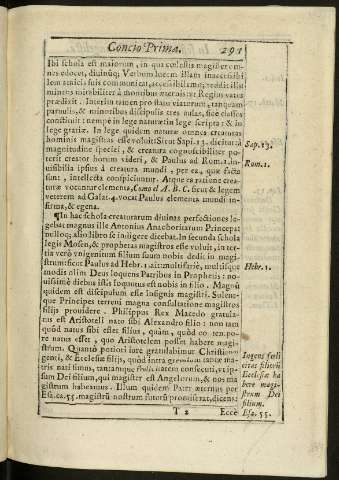 Concio Prima. 291
Ibi schola est maiorum, in qua cœlestis magister om-
nes edocet, diuinûq; Verbum lucem illam inaccessibi
lem amicis suis communicat, accessibilemq; reddit illu
minans mirabiliter à montibus æternis, vt Regius vates
prædixit. Interim tamen pro statu viatorum, tanquam
paruulis, & minoribus discipulis tres aulas, siue classes
constituit: nempè in lege naturæ: in lege scripta: & in
lege gratiæ. In lege quidem naturæ omnes creaturas
hominis magistras esse voluit. Sicut Sapi. 13. dicitur: à
magnitudine speciei, & creaturæ cognoscibiliter po-
terit creator horum videri, & Paulus ad Rom. 1. in-
uisibilia ipsius à creatura mundi, per ea, quæ facta
sunt, intellecta conspiciuntur. Atque ea ratione crea-
turæ vocantur elementa, Como el A. B. C. sicut & legem
veterem ad Galat. 4. vocat Paulus elementa mundi in-
firma, & egena.
¶In hac schola creaturarum diuinas perfectiones le-
gebat magnus ille Antonius Anachoritarum Princeps:
nulloq; alio libro se indigere dicebat. In secunda schola
legis Mosen, & prophetas magistros esse voluit, in ter-
tia verò vnigenitum filium suum nobis dedit in magi-
strum: sicut Paulus ad Hebr. 1. ait: multifariè, multisque
modis olim Deus loquens Patribus in Prophetis: no-
uissimè diebus istis loquutus est nobis in filio. Magnũ
quidem est discipulum esse insignis magistri. Solent-
que Principes terreni magna consultatione magistros
filijs prouidere. Philippus Rex Macedo gratula-
tus est Aristoteli nato sibi Alexandro filio: non tam
quòd natus sibi esset filius, quàm, quòd eo tempo-
re natus esset, quo Aristotelem posset habere magi-
strum. Quanto potiori iure gratulabimur Christianæ
genti, & Ecclesiæ filijs, quòd intra gremium tantæ ma-
tris nati simus, tantamque fœlicitatem consecuti, vt ip-
sum Dei filium, qui magister est Angelorum, & nos ma
gistrum habeamus. Illum quidem Pater æternus per
Esa. ca. 55. magistrũ nostrum futurũ promiserat, dicens:
T 2 Ecce
Sap. 13.
Rom. 1.
Hebr. 1.
Ingens fœli
citas filiorũ
Ecclesiæ ha
bere magi-
strum Dei
filium.
Esa. 55.